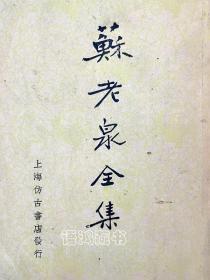 蘇老泉全集
上海仿古書店發行